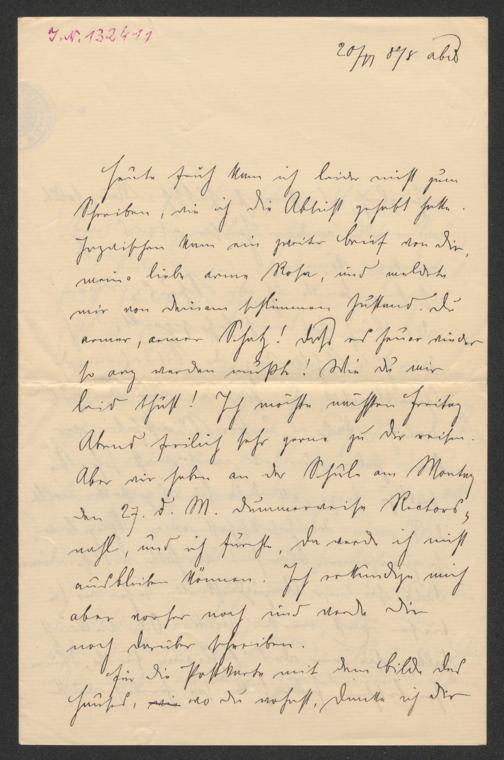 J.N. 132411
20/VI 8 abds
Heute früh kam ich leider nicht zum
Schreiben, wie ich die Absicht gehabt hatte.
Inzwischen kam ein zweiter Brief von Dir,
meine liebe arme Rosa, und meldete
mir von Deinem schlimmen Zustand. Du
armer, armer Schatz! Daß es heuer wieder
so arg werden mußte! Wie Du mir
leid thust! Ich möchte nächsten Freitag
Abend freilich sehr gerne zu Dir reisen.
Aber wir haben an der Schule am Montag
den 27. d. M. dummerweise Rectors-
wahl, und ich fürchte, da werde ich nicht
ausbleiben können. Ich erkundige mich
aber vorher noch und werde Dir
noch darüber schreiben.
Für die Postkarte mit dem Bilde des
Hauses, wo Du wohnst, danke ich Dir